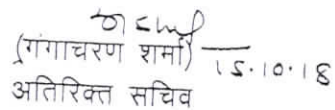 (गंगाचरण शर्मा)
15.10.18
अतिरिक्त सचिव